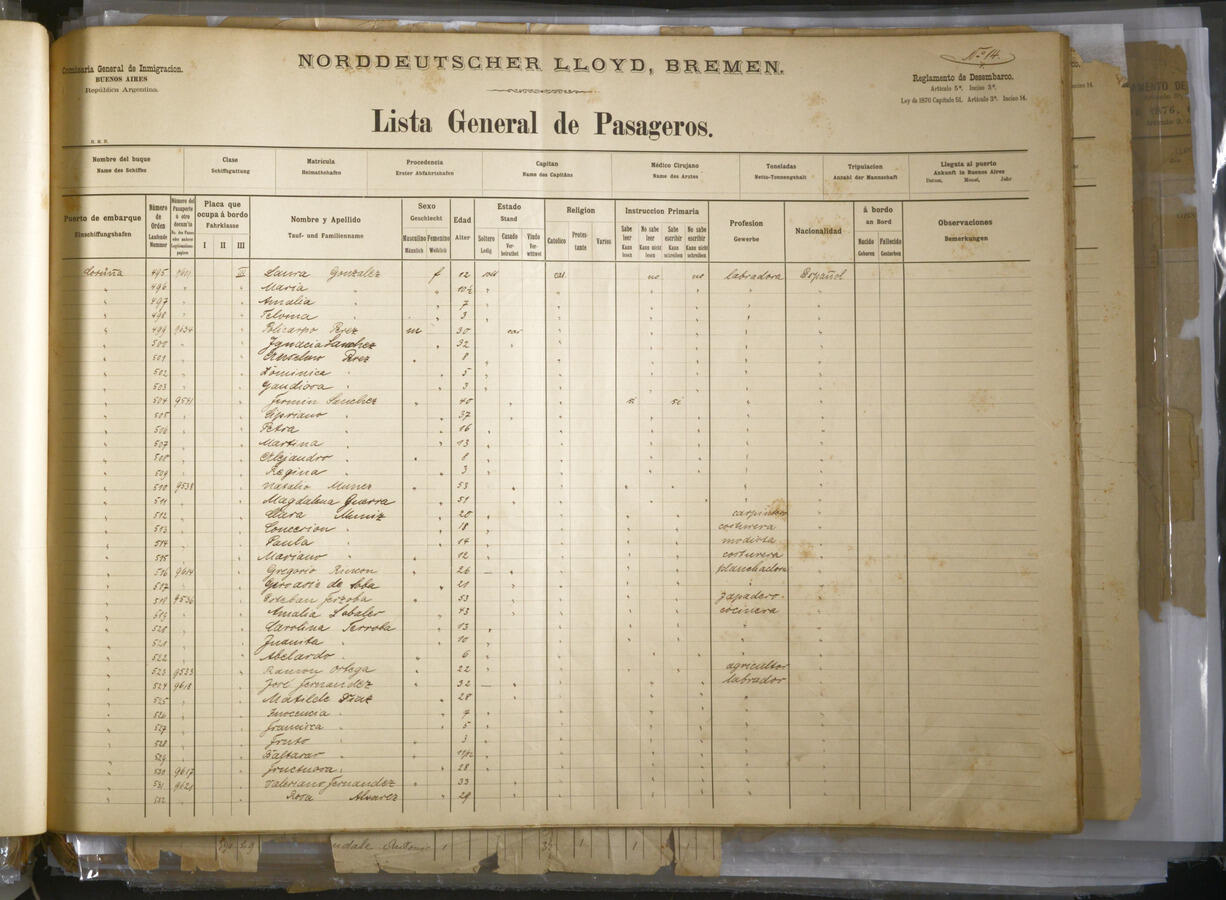 Nº 14.
Comisaria General de Inmigracion.
BUENOS AIRES
República Argentina.
NORDDEUTSCHER LLOYD, BREMEN.
Reglamento de Desembarco.
Artículo 5º. Inciso 3º.
Ley de 1876 Capítulo 51. Artículo 3º. Inciso 14.
Lista General de Pasageros.
Nombre del buque Clase Matrícula Procedencia Capitan Médico Cirujano Toneladas Tripulacion Llegata al puerto
Name des Schiffes Schiffsgattung Heimathshafen Erster Abfahrtshafen Name des Capitäns Name des Arztes Netto-Tonnengehalt Anzahl der Mannschaft Ankunft in Buenos Aires
Datum, Monat, Jahr
Puerto de embarque
Einschiffungshafen
Número de Orden
Laufende Nummer
Número del Pasaporte ó otro docum'to
Placa que ocupa á bordo
Fahrklasse
I II III
Nombre y Apellido
Tauf- und Familienname
Sexo
Geschlecht
Masculino Femenino
Männlich Weiblich
Edad
Alter
Estado
Stand
Soltero Casado Viudo
Ledig Verheirathet Verwittwet
Religion
Catolico Protestante Varios
Instruccion Primaria
Sabe leer No sabe leer Sabe escribir No sabe escribir
Kann lesen Kann nicht lesen Kann schreiben Kann nicht schreiben
Profesion
Gewerbe
Nacionalidad
á bordo
an Bord
Nacido Fallecido
Geboren Gestorben
Observaciones
Bemerkungen
Coruña 495 III Laura Gonzalez f 12 solt cat. no no labradora Español
496 Maria "
497 Amalia " 7
498 3
499 9634 Policarpo Perez m 30 cas
500 Ignacia Sanchez 32
501 Anselmo Perez 8
502 Dominica " 5
503 3
504 9541 Fermin Sanchez 40 si si
505 Cipriano " 37
506 Petra " 16
507 Martina " 13
508 Alejandro " 8
509 Regina " 3
510 9538 Natalio Muñez 53
511 Magdalena Guerra 51
512 Clara Muniz 20 carpintero
513 Concecion " 18 costurera
514 Paula " 14 modista
515 Mariano " 12 costurera
516 9614 Gregorio Rincon 26 planchadora
517 21
518 9536 Esteban 53
519 Amalia 43 cocinera
520 Carolina Terroba 13
521 Juanita " 10
522 Abelardo " 6
523 9533 Ramon Ortega 22 agricultor
524 9618 José Fernandez 32 labrador
525 Matilde Diaz 28
526 Inocencia " 7
527 Francisca " 5
528 Fruto " 3
529 Baltasar "
530 9617 Fructuosa " 28
531 9621 Valeriano Fernandez 33
532 Rosa Alvarez 29